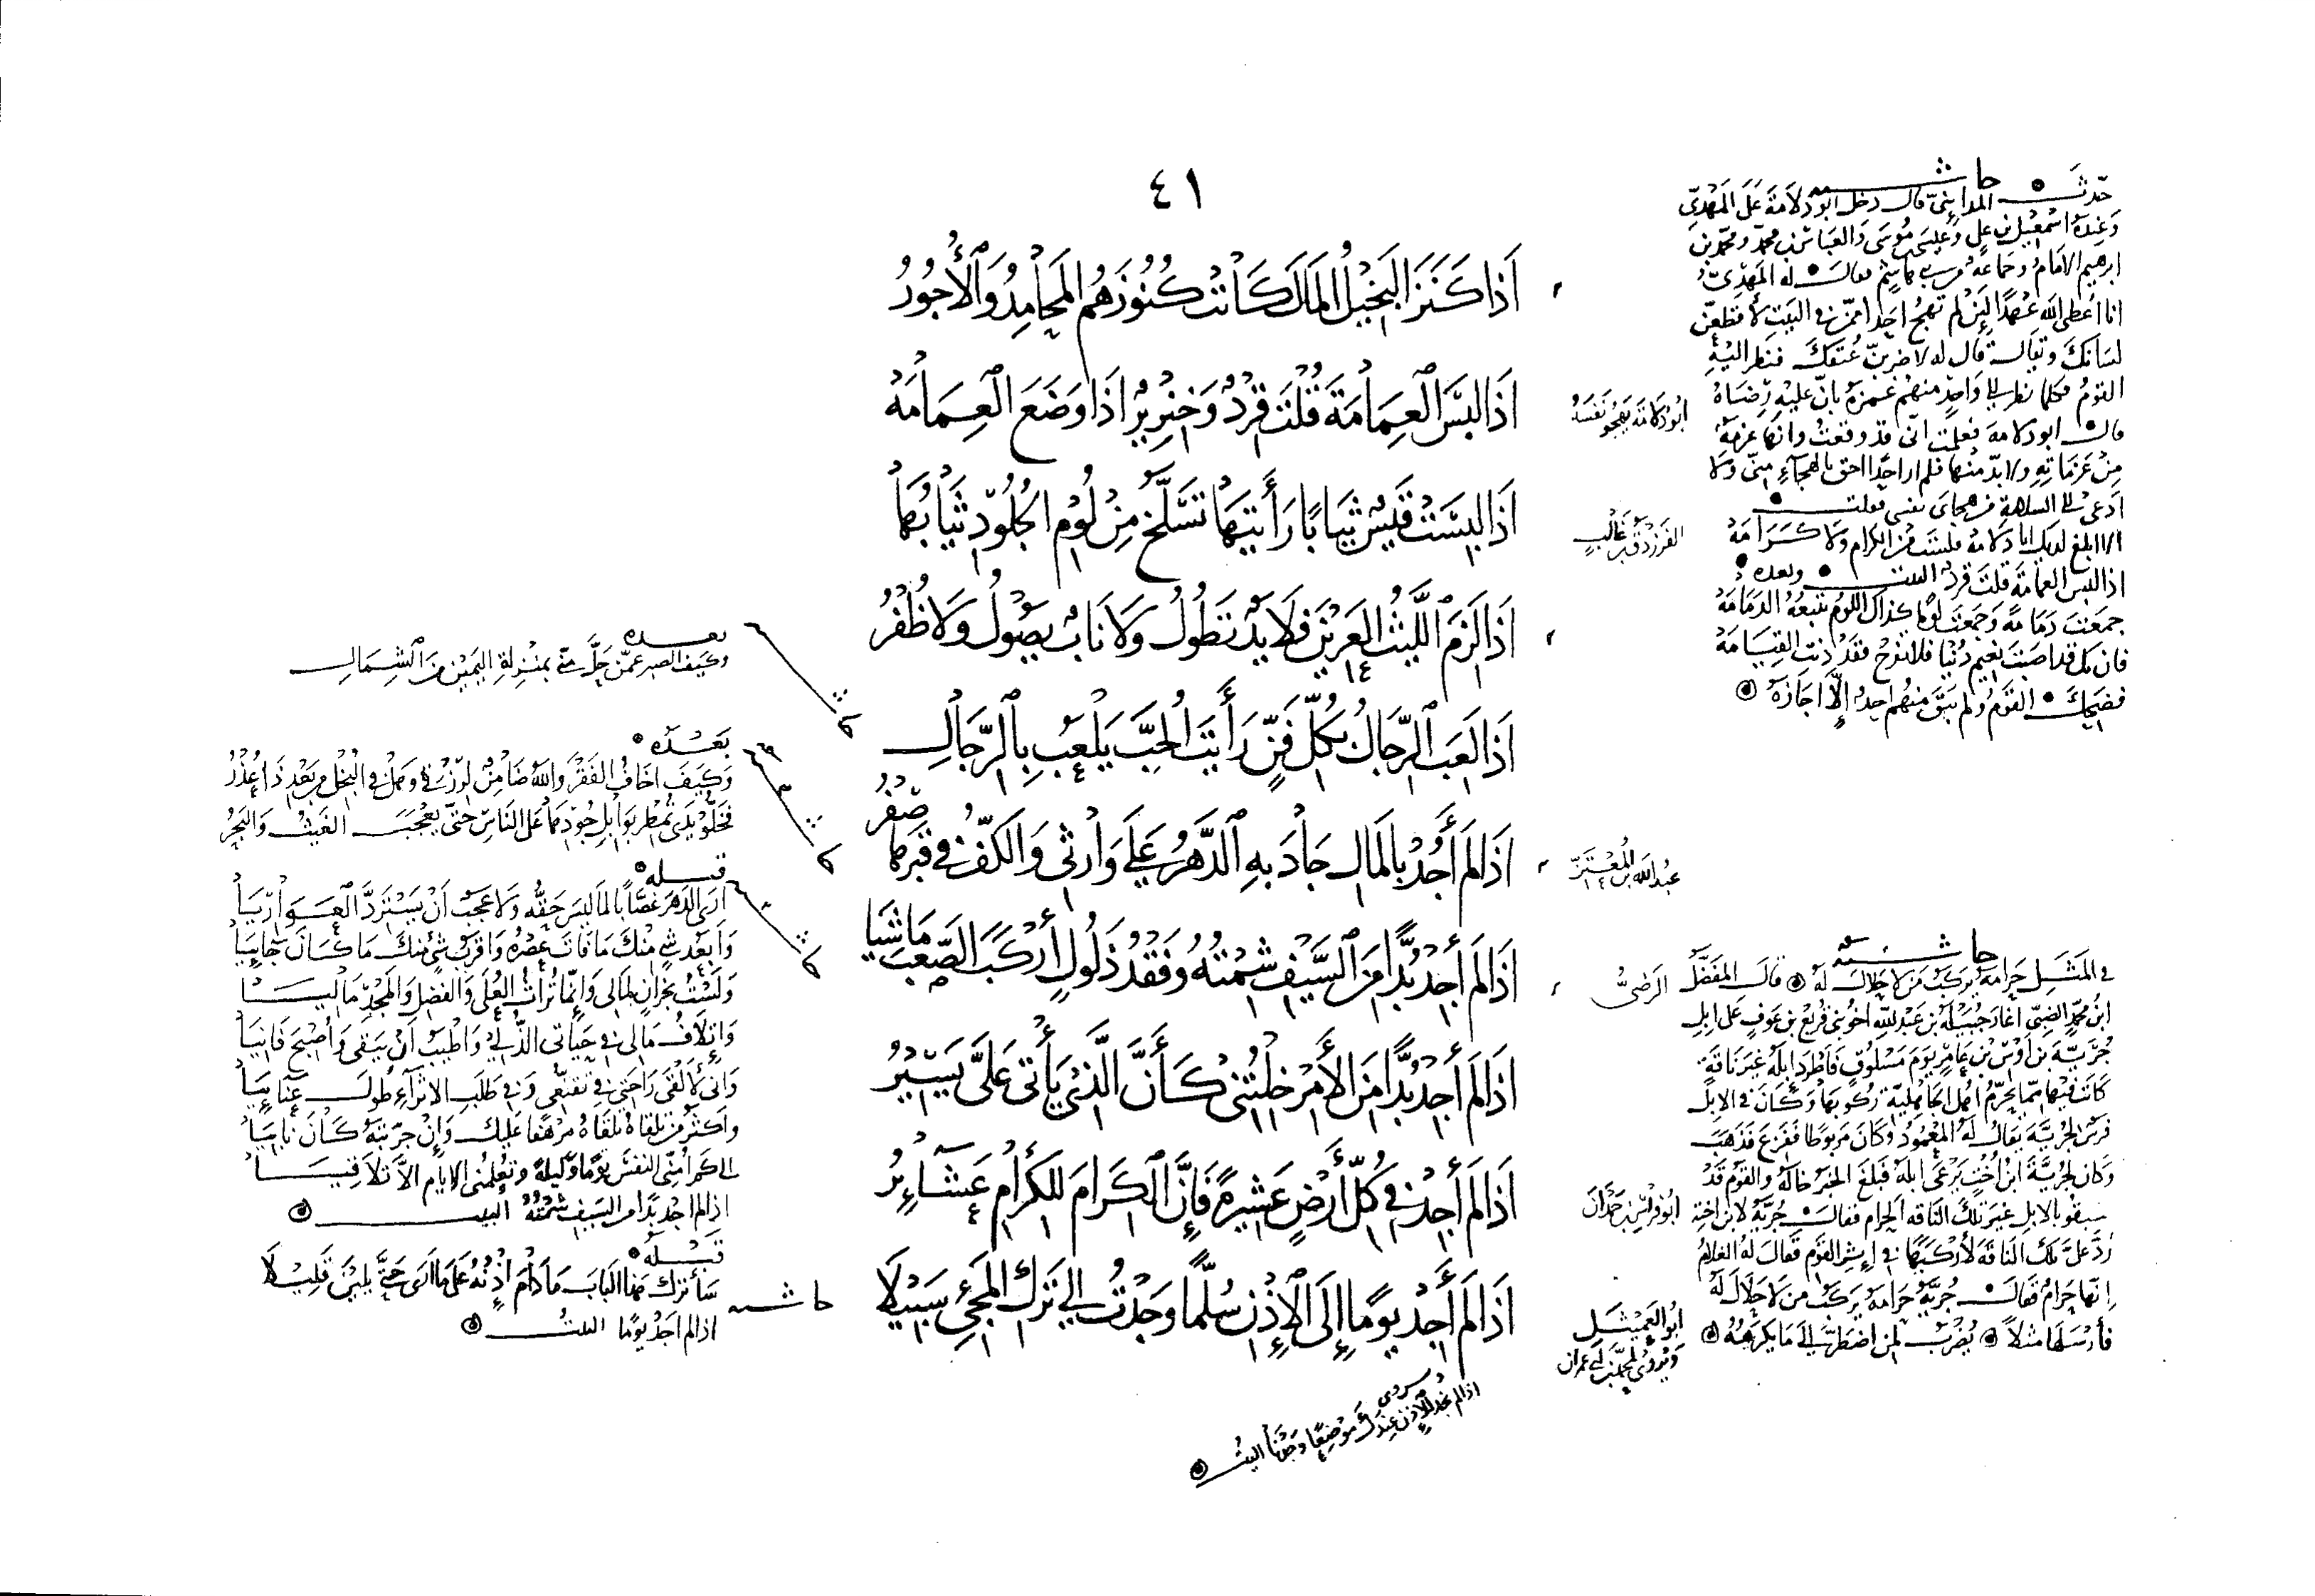 ٤١
إذا كنز البخيل المال كانت كنوزهم المحامد والأجور
إذا لبس العمامة قلت قرد وخنزير إذا وضع العمامه
إذا لبست قيس ثيابا رأيتها تسلخ من لؤم الجلود ثيابها
إذا لزم الليث العرين فلا يد تطول ولا ناب يصول ولا ظفر
إذا لعب الرجال بكل فن رأيت الحب يلعب بالرجال
إذا لم أجد بالمال جاد به الدهر على وارثي والكف في قبرها صفر
إذا لم أجد بدا من السيف شمته وفقد ذلول أركب الصعب ماشيا
إذا لم أجد بدا من الأمر خلتني كأن الذي يأتي علي يسير
إذا لم أجد في كل أرض عشيرة فإن الكرام للكرام عشائر
إذا لم أجد يوما إلى الإذن سلما وجدت إلى ترك المجيء سبيلا
اذا لم نجد للإذن عندك موضعا وجدنا البيت
حاشية
حدث المدائني قال دخل ابو دلامة على المهدي
وعنده اسمعيل بن علي وعيسى بن موسى والعباس بن محمد ومحمد بن
ابرهيم الامام وجماعة من بني هاشم فقال له المهدي
انا اعطي الله عهدا لئن لم تهج احدا ممن في البيت لاقطعن
لسانك ويقال قال له لاضربن عنقك فنظر اليه
القوم فكلما نظر الى واحد منهم غمزه بان عليه رضاه
قال ابو دلامة فعلمت اني قد وقعت وانها عزمة
من عزماته ولا بد منها فلم ار احدا احق بالهجاء مني ولا
ادعى الى السلامة من هجائي نفسي فقلت
الا ابلغ لديك ابا دلامه فلست من الكرام ولا كرامه
اذا لبس العمامة قلت قرد البيت وبعده
جمعت دمامة وجمعت لؤما كذاك اللؤم تتبعه الدمامه
فان تك قد اصبت نعيم دنيا فلا تفرح فقد دنت القيامه
فضحك القوم ولم يبق منهم احد إلا اجازه
ابو دلامة يهجو نفسه
الفرزدق بن غالب
عبد الله بن المعتز
الرضي
ابو فراس بن حمدان
ابو العميثل
ويروى لمحمد بن عمران
حاشية
في المثل حرامه يركب من لا حلال له قال المفضل
ابن محمد الضبي اغار جبيلة بن عبد الله اخو بني قريع بن عوف على ابل
جرية بن اوس بن عامر يوم مسلوق فاطرد ابله غير ناقة
كانت فيها مما يحرم اهل الجاهلية ركوبها وكان في الابل
فرس لجرية يقال له العمود وكان مربوطا ففزع فذهب
وكان لجرية ابن اخت يرعى ابله فبلغ الخبر خاله والقوم قد
سبقوا بالابل غير تلك الناقة الحرام فقال جرية لابن اخته
رد علي تلك الناقة لأركبها في إثر القوم فقال له الغلام
إنها حرام فقال جرية حرامه يركب من لا حلال له
فأرسلها مثلا يضرب لمن اضطر إلى ما يكرهه
بعده
وكيف الصبر عمن حل مني بمنزلة اليمين من الشمال
بعده
وكيف اخاف الفقر والله ضامن لرزقي وهل في البخل من بعد ذا عذر
فخلوا يدي تمطر بوابل جودها على الناس حتى يعجب الغيث والبحر
قبله
أرى الدهر غصابا لما ليس حقه ولا عجب أن يسترد العواريا
وأبعد شيء منك ما فات عصره واقرب شيء منك ما كان جائيا
ولست بخزان لمالي وإنما تراث العلى والفضل والمجد ماليا
وإتلاف مالي في حياتي ألذ لي واطيب أن يبقى وأصبح فانيا
واني لألقى راحتي في تقنعي وفي طلب الاثراء طول عنائيا
وأكثر من تلقاه تلقاه مرهفا عليك وإن جربته كان نابيا
إلى كم أمني النفس يوما وليلة وتعلمني الايام الا تلاقيا
اذا لم اجد بدا من السيف شمته البيت
قبله
سأترك هذا الباب ما دام إذنه على ما ارى حتى يلين قليلا
اذا لم اجد يوما البيت
حاشية